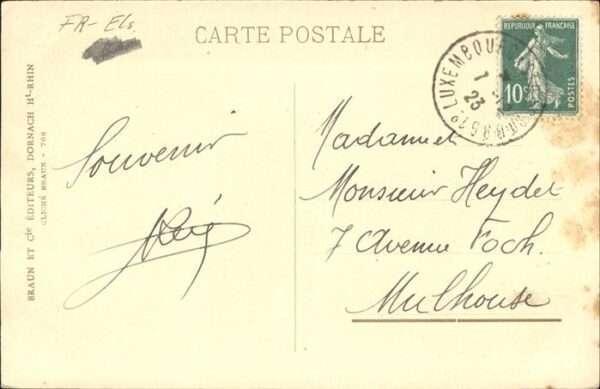 FR-Els
CARTE POSTALE
REPUBLIQUE FRANÇAISE
10c
POSTES
LUXEMBOU
23
BRAUN ET Cie ÉDITEURS, DORNACH Ht-RHIN
CLICHÉ BRAUN - 708
Souvenir
Madame et
Monsieur Heydet
7 Avenue Foch.
Mulhouse